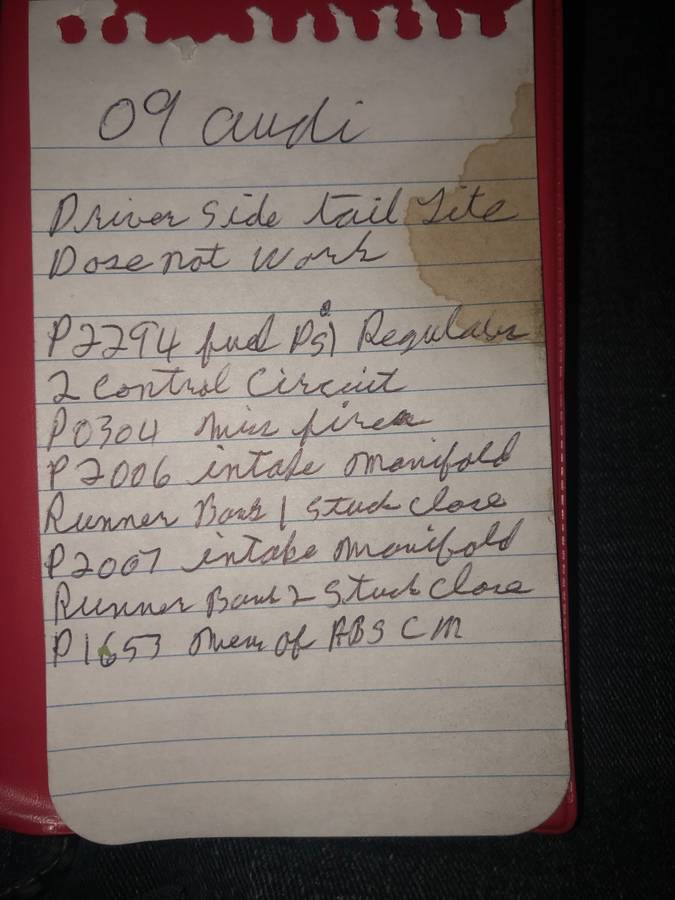 09 audi
Driver side tail Lite
Dose not work
P2294 fuel Psi Regulator
2 control circuit
P0304 miss fires
P2006 intake manifold
Runner Bank 1 stuck close
P2007 intake manifold
Runner Bank 2 stuck close
P1653 mem of ABS CM